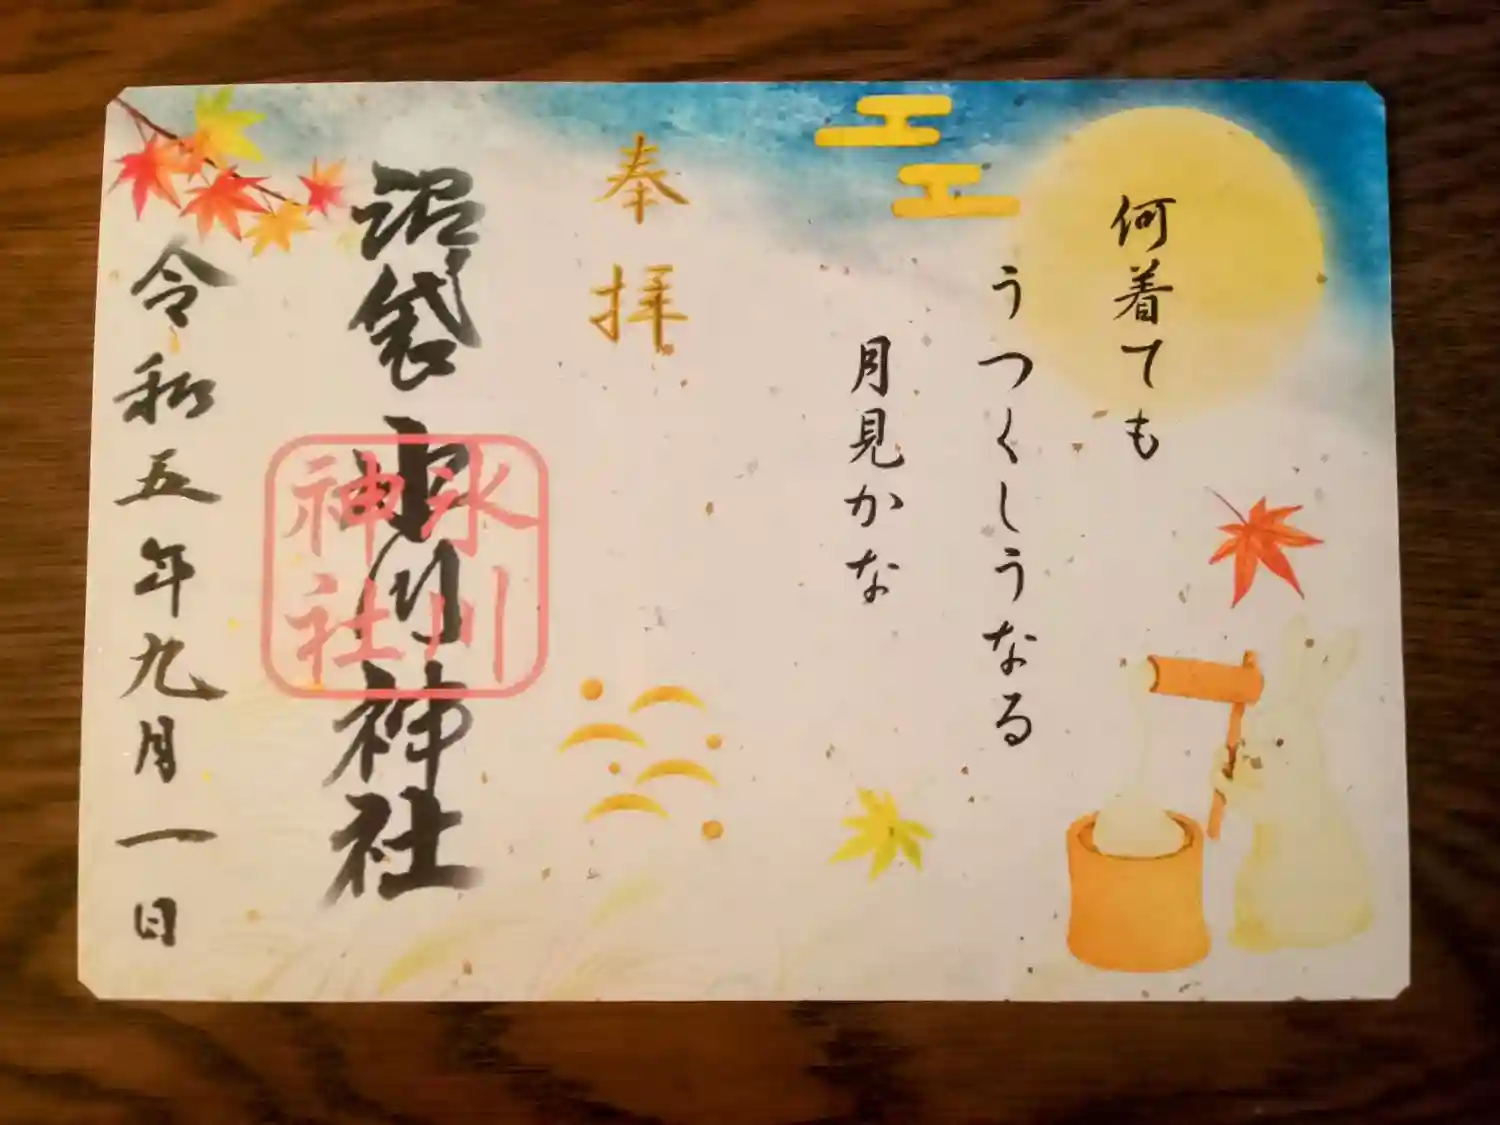 何着ても
うつくしうなる
月見かな
奉拝
沼袋氷川神社
氷川
神社
令和五年九月一日